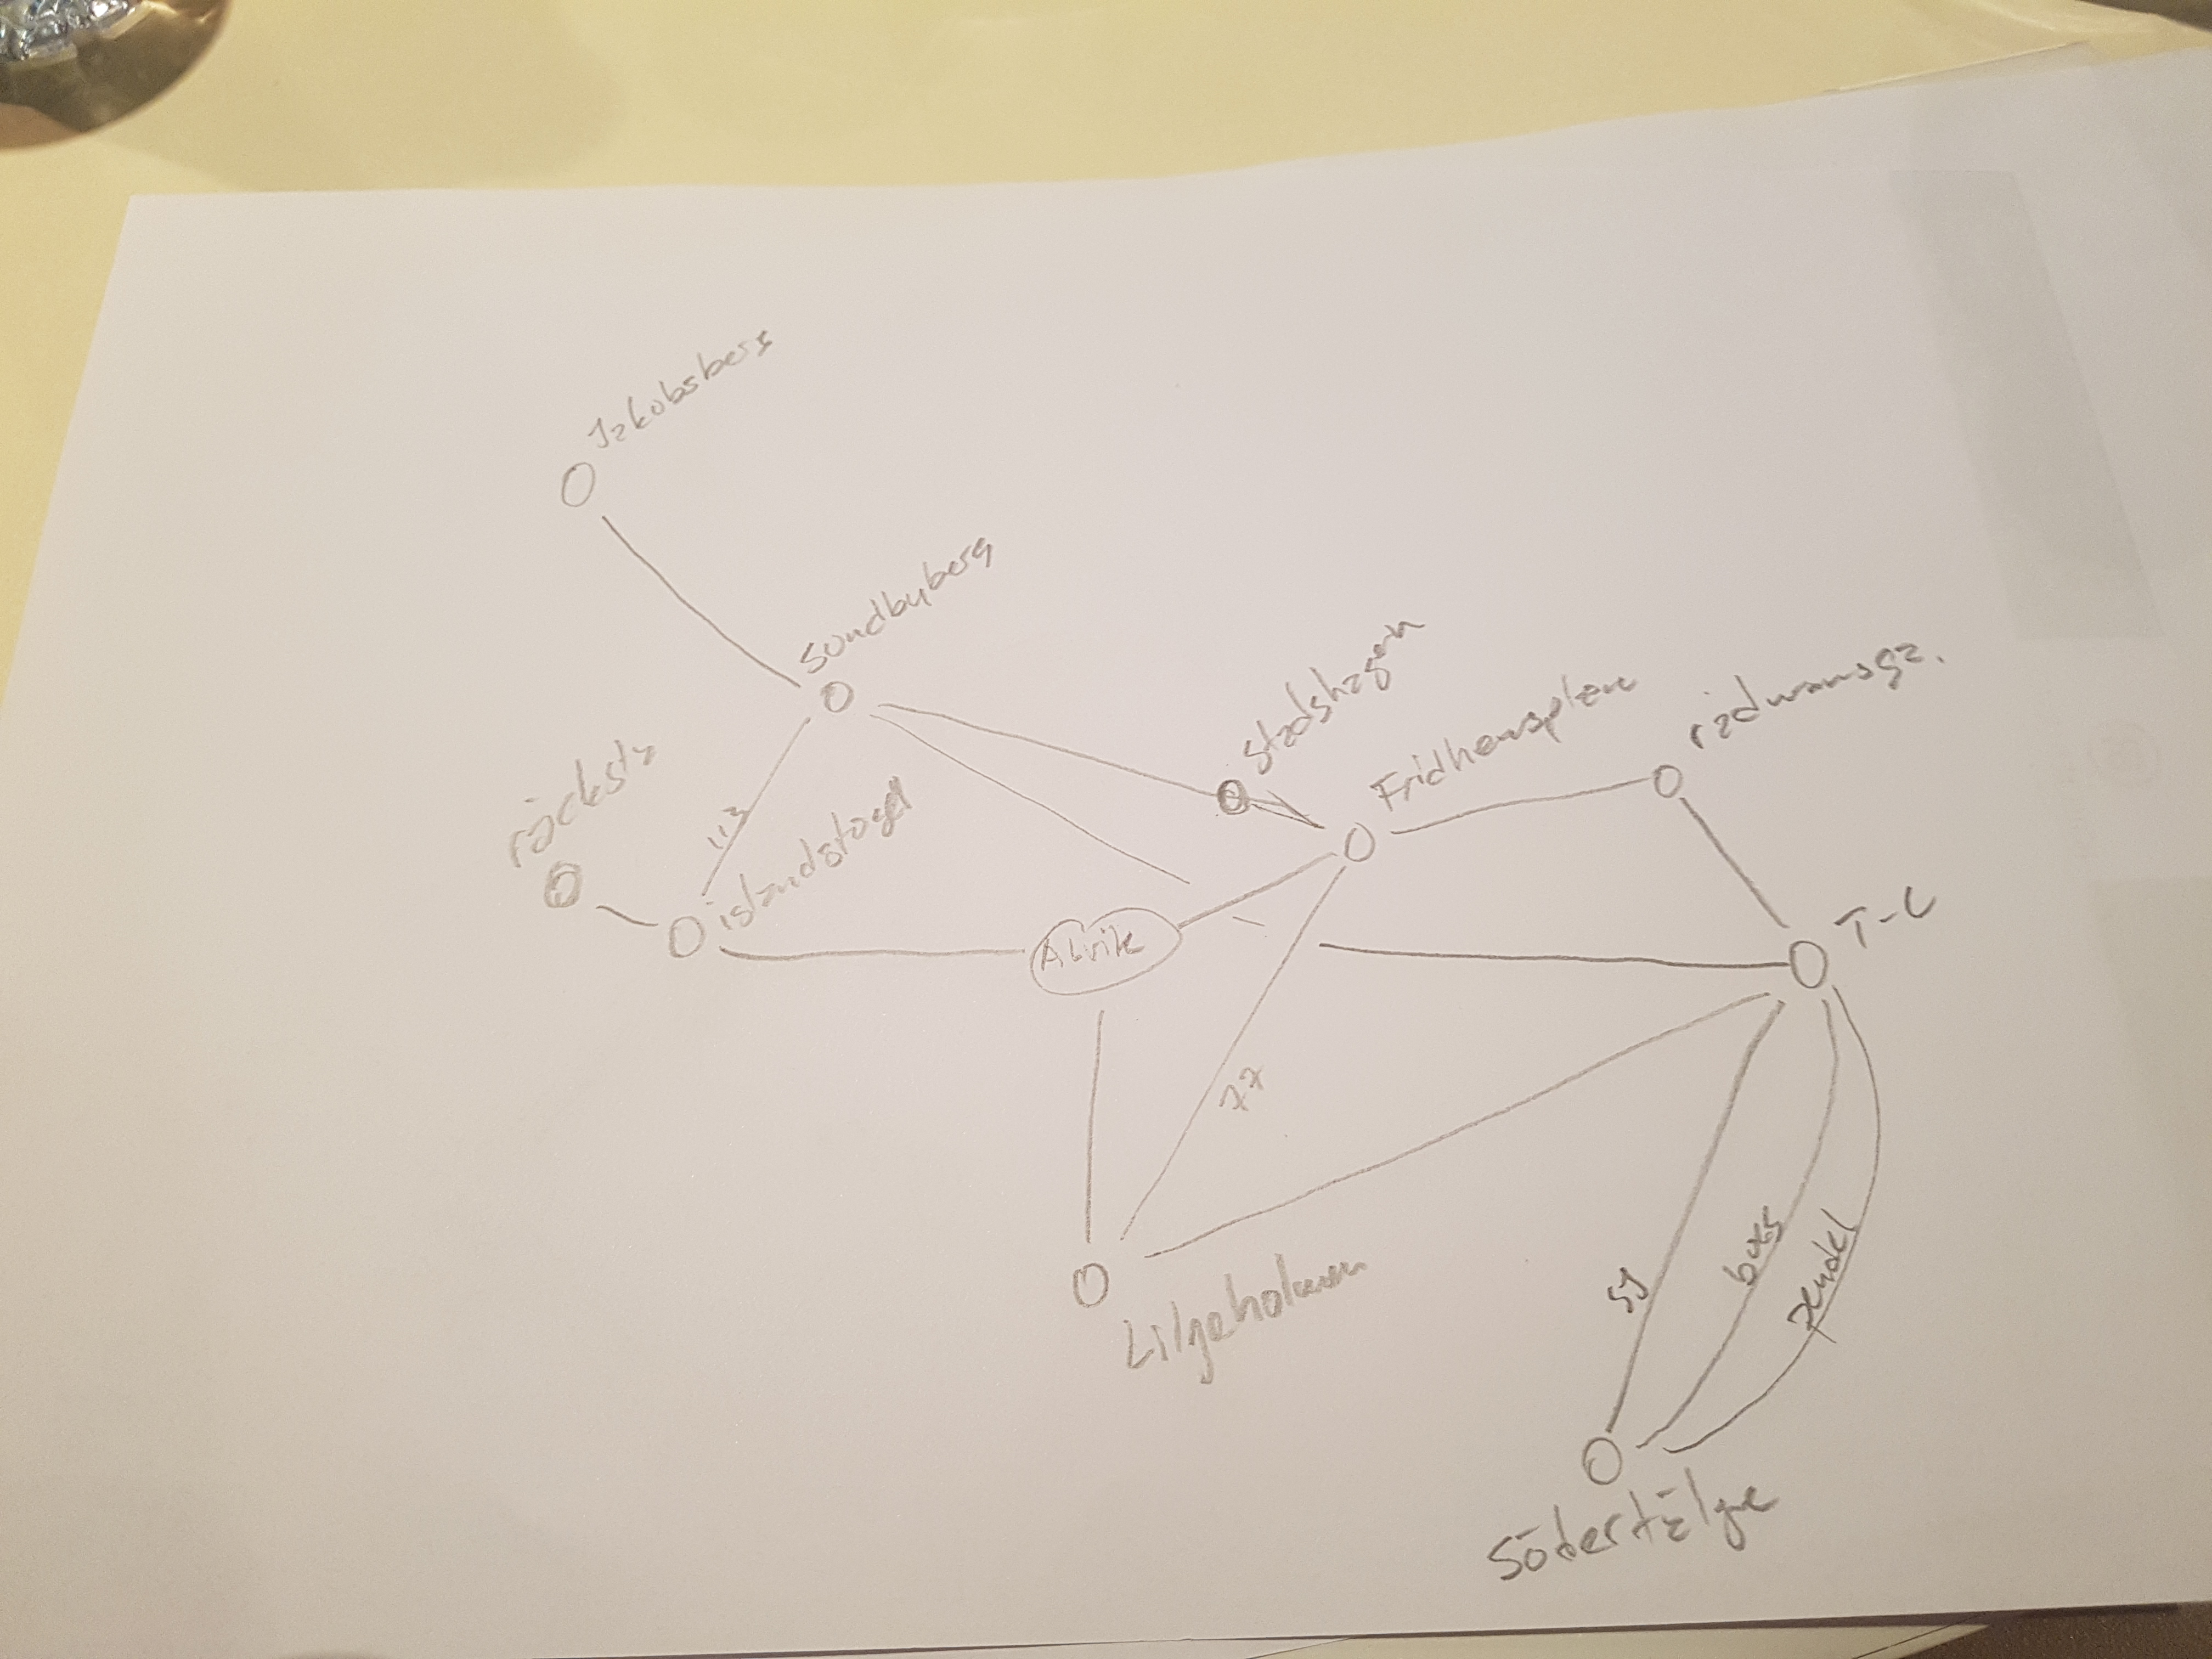 Jakobsberg
Sundbyberg
stadshagen
Fridhemsplan
rådmansga.
råcksta
113
islandstoget
Alvik
T-C
77
Liljeholmen
SJ
buss
pendel
södertälje